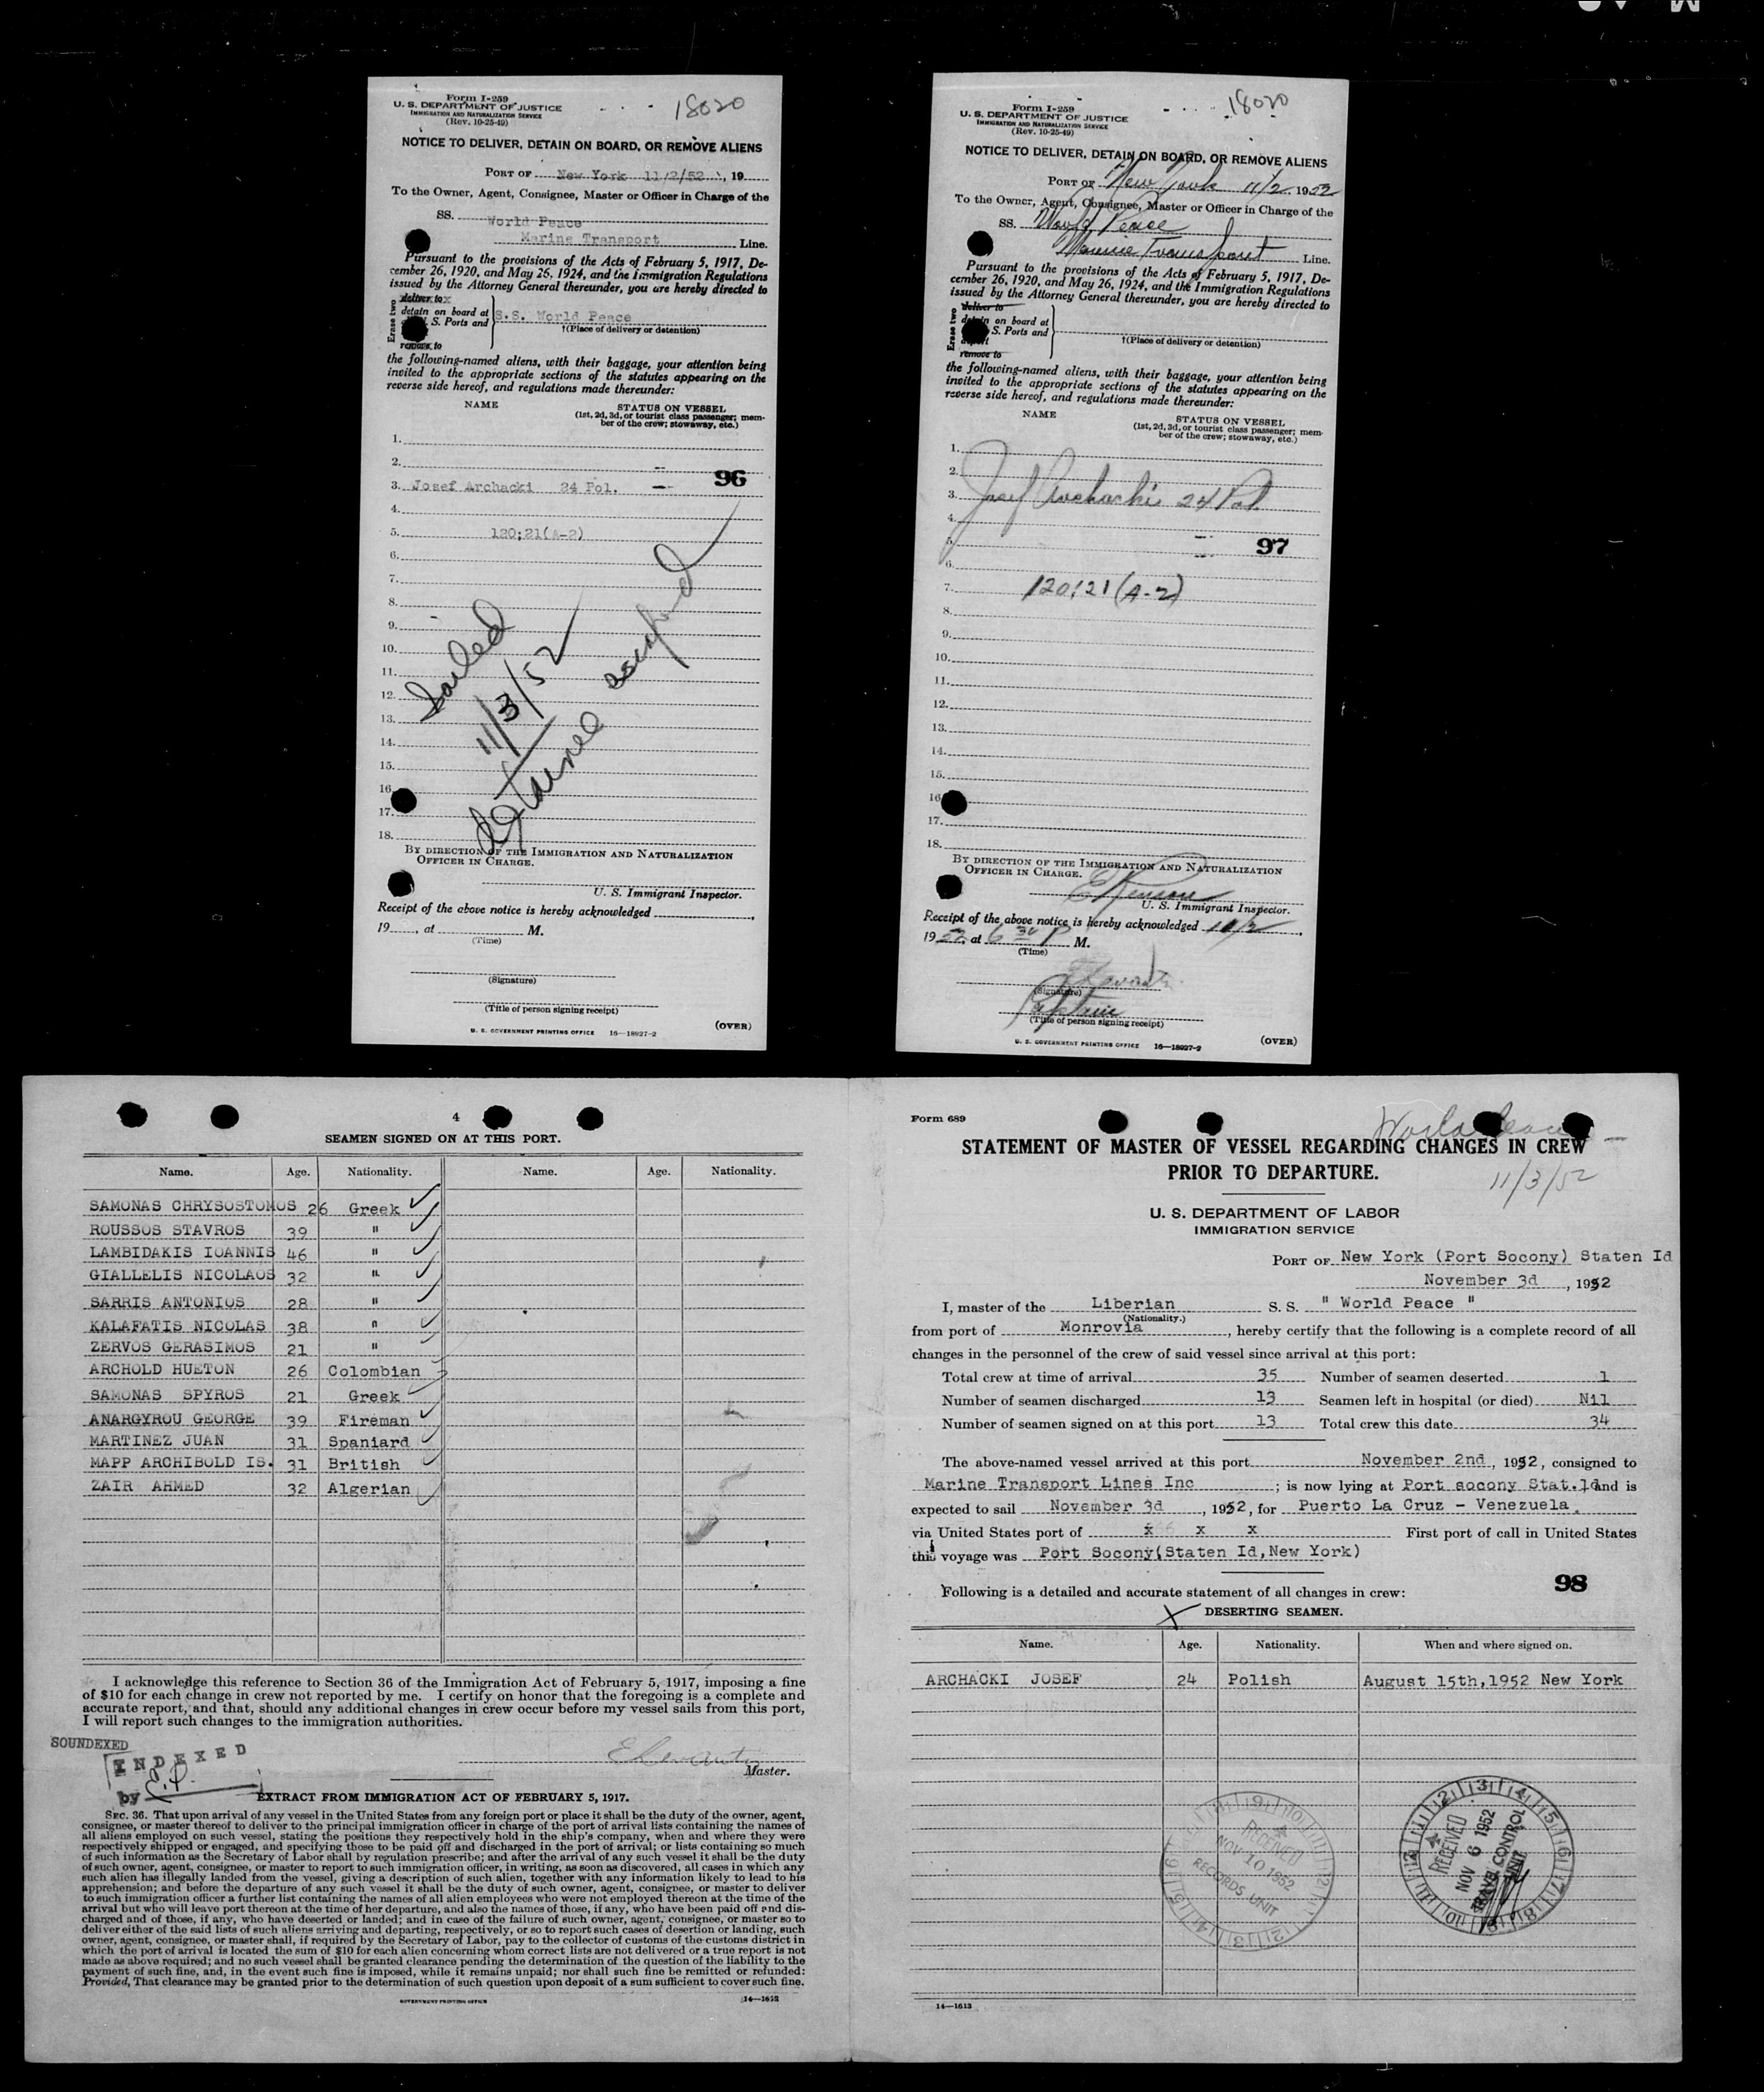 Form I-259
U. S. DEPARTMENT OF JUSTICE
IMMIGRATION AND NATURALIZATION SERVICE
(Rev. 10-25-49)
18020
NOTICE TO DELIVER, DETAIN ON BOARD, OR REMOVE ALIENS
PORT OF New York 11/2/52, 19
To the Owner, Agent, Consignee, Master or Officer in Charge of the
SS. World Peace
Marine Transport Line.
Pursuant to the provisions of the Acts of February 5, 1917, De-
cember 26, 1920, and May 26, 1924, and the Immigration Regulations
issued by the Attorney General thereunder, you are hereby directed to
Erase two
deliver to
detain on board at
S. Ports and
remove to
S.S. World Peace
†(Place of delivery or detention)
the following-named aliens, with their baggage, your attention being
invited to the appropriate sections of the statutes appearing on the
reverse side hereof, and regulations made thereunder:
NAME STATUS ON VESSEL
(1st, 2d, 3d, or tourist class passenger; mem-
ber of the crew; stowaway, etc.)
1.
2.
96
3. Josef Archacki 24 Pol.
4.
5. 120;21(A-2)
6.
7.
8.
9.
10.
11.
12.
13.
14.
15.
16.
17.
18.
Sailed
11/3/52
Detainee escaped
BY DIRECTION OF THE IMMIGRATION AND NATURALIZATION
OFFICER IN CHARGE.
U. S. Immigrant Inspector.
Receipt of the above notice is hereby acknowledged
19, at M.
(Time)
(Signature)
(Title of person signing receipt)
U. S. GOVERNMENT PRINTING OFFICE 16—18927-2 (OVER)
Form I-259
U. S. DEPARTMENT OF JUSTICE
IMMIGRATION AND NATURALIZATION SERVICE
(Rev. 10-25-49)
18020
NOTICE TO DELIVER, DETAIN ON BOARD, OR REMOVE ALIENS
PORT OF New York 11/2, 1952
To the Owner, Agent, Consignee, Master or Officer in Charge of the
SS. World Peace
Marine Transport Line.
Pursuant to the provisions of the Acts of February 5, 1917, De-
cember 26, 1920, and May 26, 1924, and the Immigration Regulations
issued by the Attorney General thereunder, you are hereby directed to
Erase two
deliver to
detain on board at
S. Ports and
remove to
†(Place of delivery or detention)
the following-named aliens, with their baggage, your attention being
invited to the appropriate sections of the statutes appearing on the
reverse side hereof, and regulations made thereunder:
NAME STATUS ON VESSEL
(1st, 2d, 3d, or tourist class passenger; mem-
ber of the crew; stowaway, etc.)
1.
2.
3. Josef Archacki 24 Pol.
4.
5.
97
6.
7. 120;21 (A-2)
8.
9.
10.
11.
12.
13.
14.
15.
16
17.
18.
BY DIRECTION OF THE IMMIGRATION AND NATURALIZATION
OFFICER IN CHARGE.
U. S. Immigrant Inspector.
Receipt of the above notice is hereby acknowledged 11/2,
1952, at 6 30 P M.
(Time)
(Signature)
Captain
(Title of person signing receipt)
U. S. GOVERNMENT PRINTING OFFICE 16—18927-2 (OVER)
4
SEAMEN SIGNED ON AT THIS PORT.
Name. Age. Nationality. Name. Age. Nationality.
SAMONAS CHRYSOSTOMOS 26 Greek
ROUSSOS STAVROS 39 "
LAMBIDAKIS IOANNIS 46 "
GIALLELIS NICOLAOS 32 "
SARRIS ANTONIOS 28 "
KALAFATIS NICOLAS 38 "
ZERVOS GERASIMOS 21 "
ARCHOLD HUETON 26 Colombian
SAMONAS SPYROS 21 Greek
ANARGYROU GEORGE 39 Fireman
MARTINEZ JUAN 31 Spaniard
MAPP ARCHIBOLD IS. 31 British
ZAIR AHMED 32 Algerian
I acknowledge this reference to Section 36 of the Immigration Act of February 5, 1917, imposing a fine
of $10 for each change in crew not reported by me. I certify on honor that the foregoing is a complete and
accurate report, and that, should any additional changes in crew occur before my vessel sails from this port,
I will report such changes to the immigration authorities.
SOUNDEXED
INDEXED
by E.P.
Master.
EXTRACT FROM IMMIGRATION ACT OF FEBRUARY 5, 1917.
SEC. 36. That upon arrival of any vessel in the United States from any foreign port or place it shall be the duty of the owner, agent,
consignee, or master thereof to deliver to the principal immigration officer in charge of the port of arrival lists containing the names of
all aliens employed on such vessel, stating the positions they respectively hold in the ship's company, when and where they were
respectively shipped or engaged, and specifying those to be paid off and discharged in the port of arrival; or lists containing so much
of such information as the Secretary of Labor shall by regulation prescribe; and after the arrival of any such vessel it shall be the duty
of such owner, agent, consignee, or master to report to such immigration officer, in writing, as soon as discovered, all cases in which any
such alien has illegally landed from the vessel, giving a description of such alien, together with any information likely to lead to his
apprehension; and before the departure of any such vessel it shall be the duty of such owner, agent, consignee, or master to deliver
to such immigration officer a further list containing the names of all alien employees who were not employed thereon at the time of the
arrival but who will leave port thereon at the time of her departure, and also the names of those, if any, who have been paid off and dis-
charged and of those, if any, who have deserted or landed; and in case of the failure of such owner, agent, consignee, or master so to
deliver either of the said lists of such aliens arriving and departing, respectively, or so to report such cases of desertion or landing, such
owner, agent, consignee, or master shall, if required by the Secretary of Labor, pay to the collector of customs of the customs district in
which the port of arrival is located the sum of $10 for each alien concerning whom correct lists are not delivered or a true report is not
made as above required; and no such vessel shall be granted clearance pending the determination of the question of the liability to the
payment of such fine, and, in the event such fine is imposed, while it remains unpaid; nor shall such fine be remitted or refunded:
Provided, That clearance may be granted prior to the determination of such question upon deposit of a sum sufficient to cover such fine.
GOVERNMENT PRINTING OFFICE 14—1613
Form 689
World Peace
STATEMENT OF MASTER OF VESSEL REGARDING CHANGES IN CREW
PRIOR TO DEPARTURE.
11/3/52
U. S. DEPARTMENT OF LABOR
IMMIGRATION SERVICE
PORT OF New York (Port Socony) Staten Id
November 3d, 1952
I, master of the Liberian S. S. " World Peace "
(Nationality.)
from port of Monrovia, hereby certify that the following is a complete record of all
changes in the personnel of the crew of said vessel since arrival at this port:
Total crew at time of arrival 35 Number of seamen deserted 1
Number of seamen discharged 13 Seamen left in hospital (or died) Nil
Number of seamen signed on at this port 13 Total crew this date 34
The above-named vessel arrived at this port November 2nd, 1952, consigned to
Marine Transport Lines Inc; is now lying at Port socony Stat.Id and is
expected to sail November 3d, 1952, for Puerto La Cruz - Venezuela.
via United States port of x x x First port of call in United States
this voyage was Port Socony(Staten Id,New York)
98
Following is a detailed and accurate statement of all changes in crew:
X DESERTING SEAMEN.
Name. Age. Nationality. When and where signed on.
ARCHACKI JOSEF 24 Polish August 15th,1952 New York
RECEIVED
NOV 10 1952
RECORDS UNIT
RECEIVED
NOV 6 1952
TRAVEL CONTROL
UNIT
14—1613